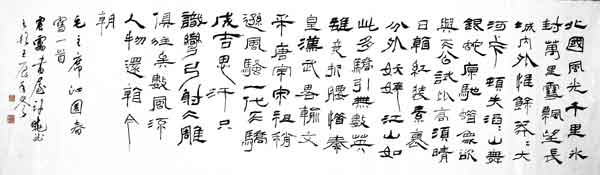 北國風光千里冰
封萬里雪飄望長
城内外惟餘莽〻大
河上下頓失滔〻山舞
銀蛇原馳蠟象欲
與天公試比高須晴
日看紅裝素裹
分外妖嬈江山如
此多驕引無數英
雄競折腰惜秦
皇漢武略輸文
采唐宗宋祖稍
遜風騷一代天驕
成吉思汗只
識彎弓射大雕
俱往矣數風流
人物還看今
朝
毛主席沁園春
雪一首